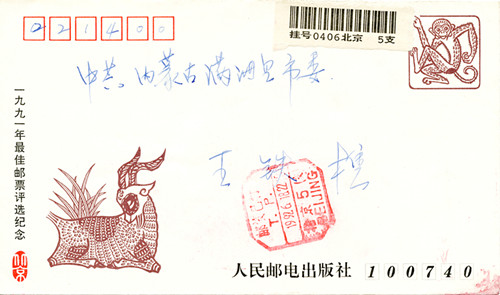 021400
挂号0406北京 5支
中共内蒙古满洲里市委
王铁桩
一九九一年最佳邮票评选纪念
北京
T. P.
1992.6.13.22
BEIJING
人民邮电出版社 100740